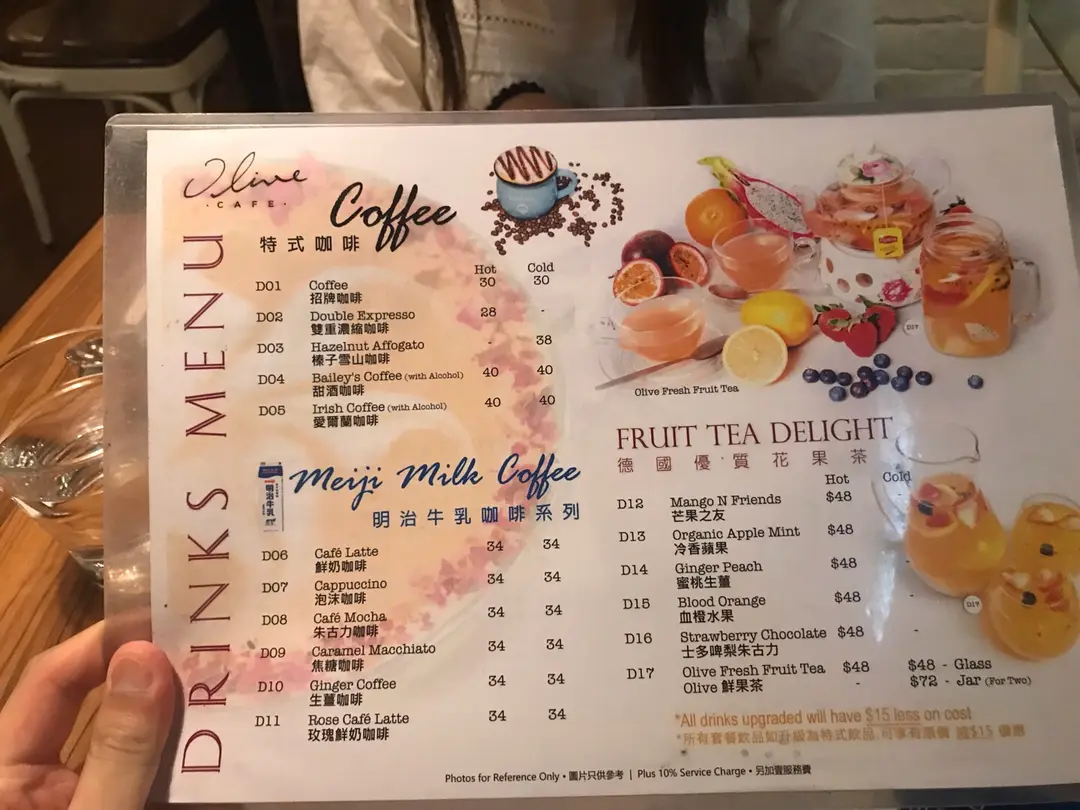 Olive
· CAFE ·
DRINKS MENU
Coffee
特式咖啡
Hot Cold
D01 Coffee 30 30
招牌咖啡
D02 Double Expresso 28 -
雙重濃縮咖啡
D03 Hazelnut Affogato - 38
榛子雪山咖啡
D04 Bailey's Coffee (with Alcohol) 40 40
甜酒咖啡
D05 Irish Coffee (with Alcohol) 40 40
愛爾蘭咖啡
明治牛乳
Meiji Milk Coffee
明治牛乳咖啡系列
D06 Café Latte 34 34
鮮奶咖啡
D07 Cappuccino 34 34
泡沫咖啡
D08 Café Mocha 34 34
朱古力咖啡
D09 Caramel Macchiato 34 34
焦糖咖啡
D10 Ginger Coffee 34 34
生薑咖啡
D11 Rose Café Latte 34 34
玫瑰鮮奶咖啡
D17
Olive Fresh Fruit Tea
FRUIT TEA DELIGHT
德國優質花果茶
Hot Cold
D12 Mango N Friends $48 -
芒果之友
D13 Organic Apple Mint $48 -
冷香蘋果
D14 Ginger Peach $48 -
蜜桃生薑
D15 Blood Orange $48 -
血橙水果
D16 Strawberry Chocolate $48 -
士多啤梨朱古力
D17 Olive Fresh Fruit Tea $48 $48 - Glass
Olive 鮮果茶 - $72 - Jar (For Two)
D17
*All drinks upgraded will have $15 less on cost
*所有套餐飲品如升級為特式飲品,可享有原價 減$15 優惠
Photos for Reference Only • 圖片只供參考 | Plus 10% Service Charge • 另加壹服務費